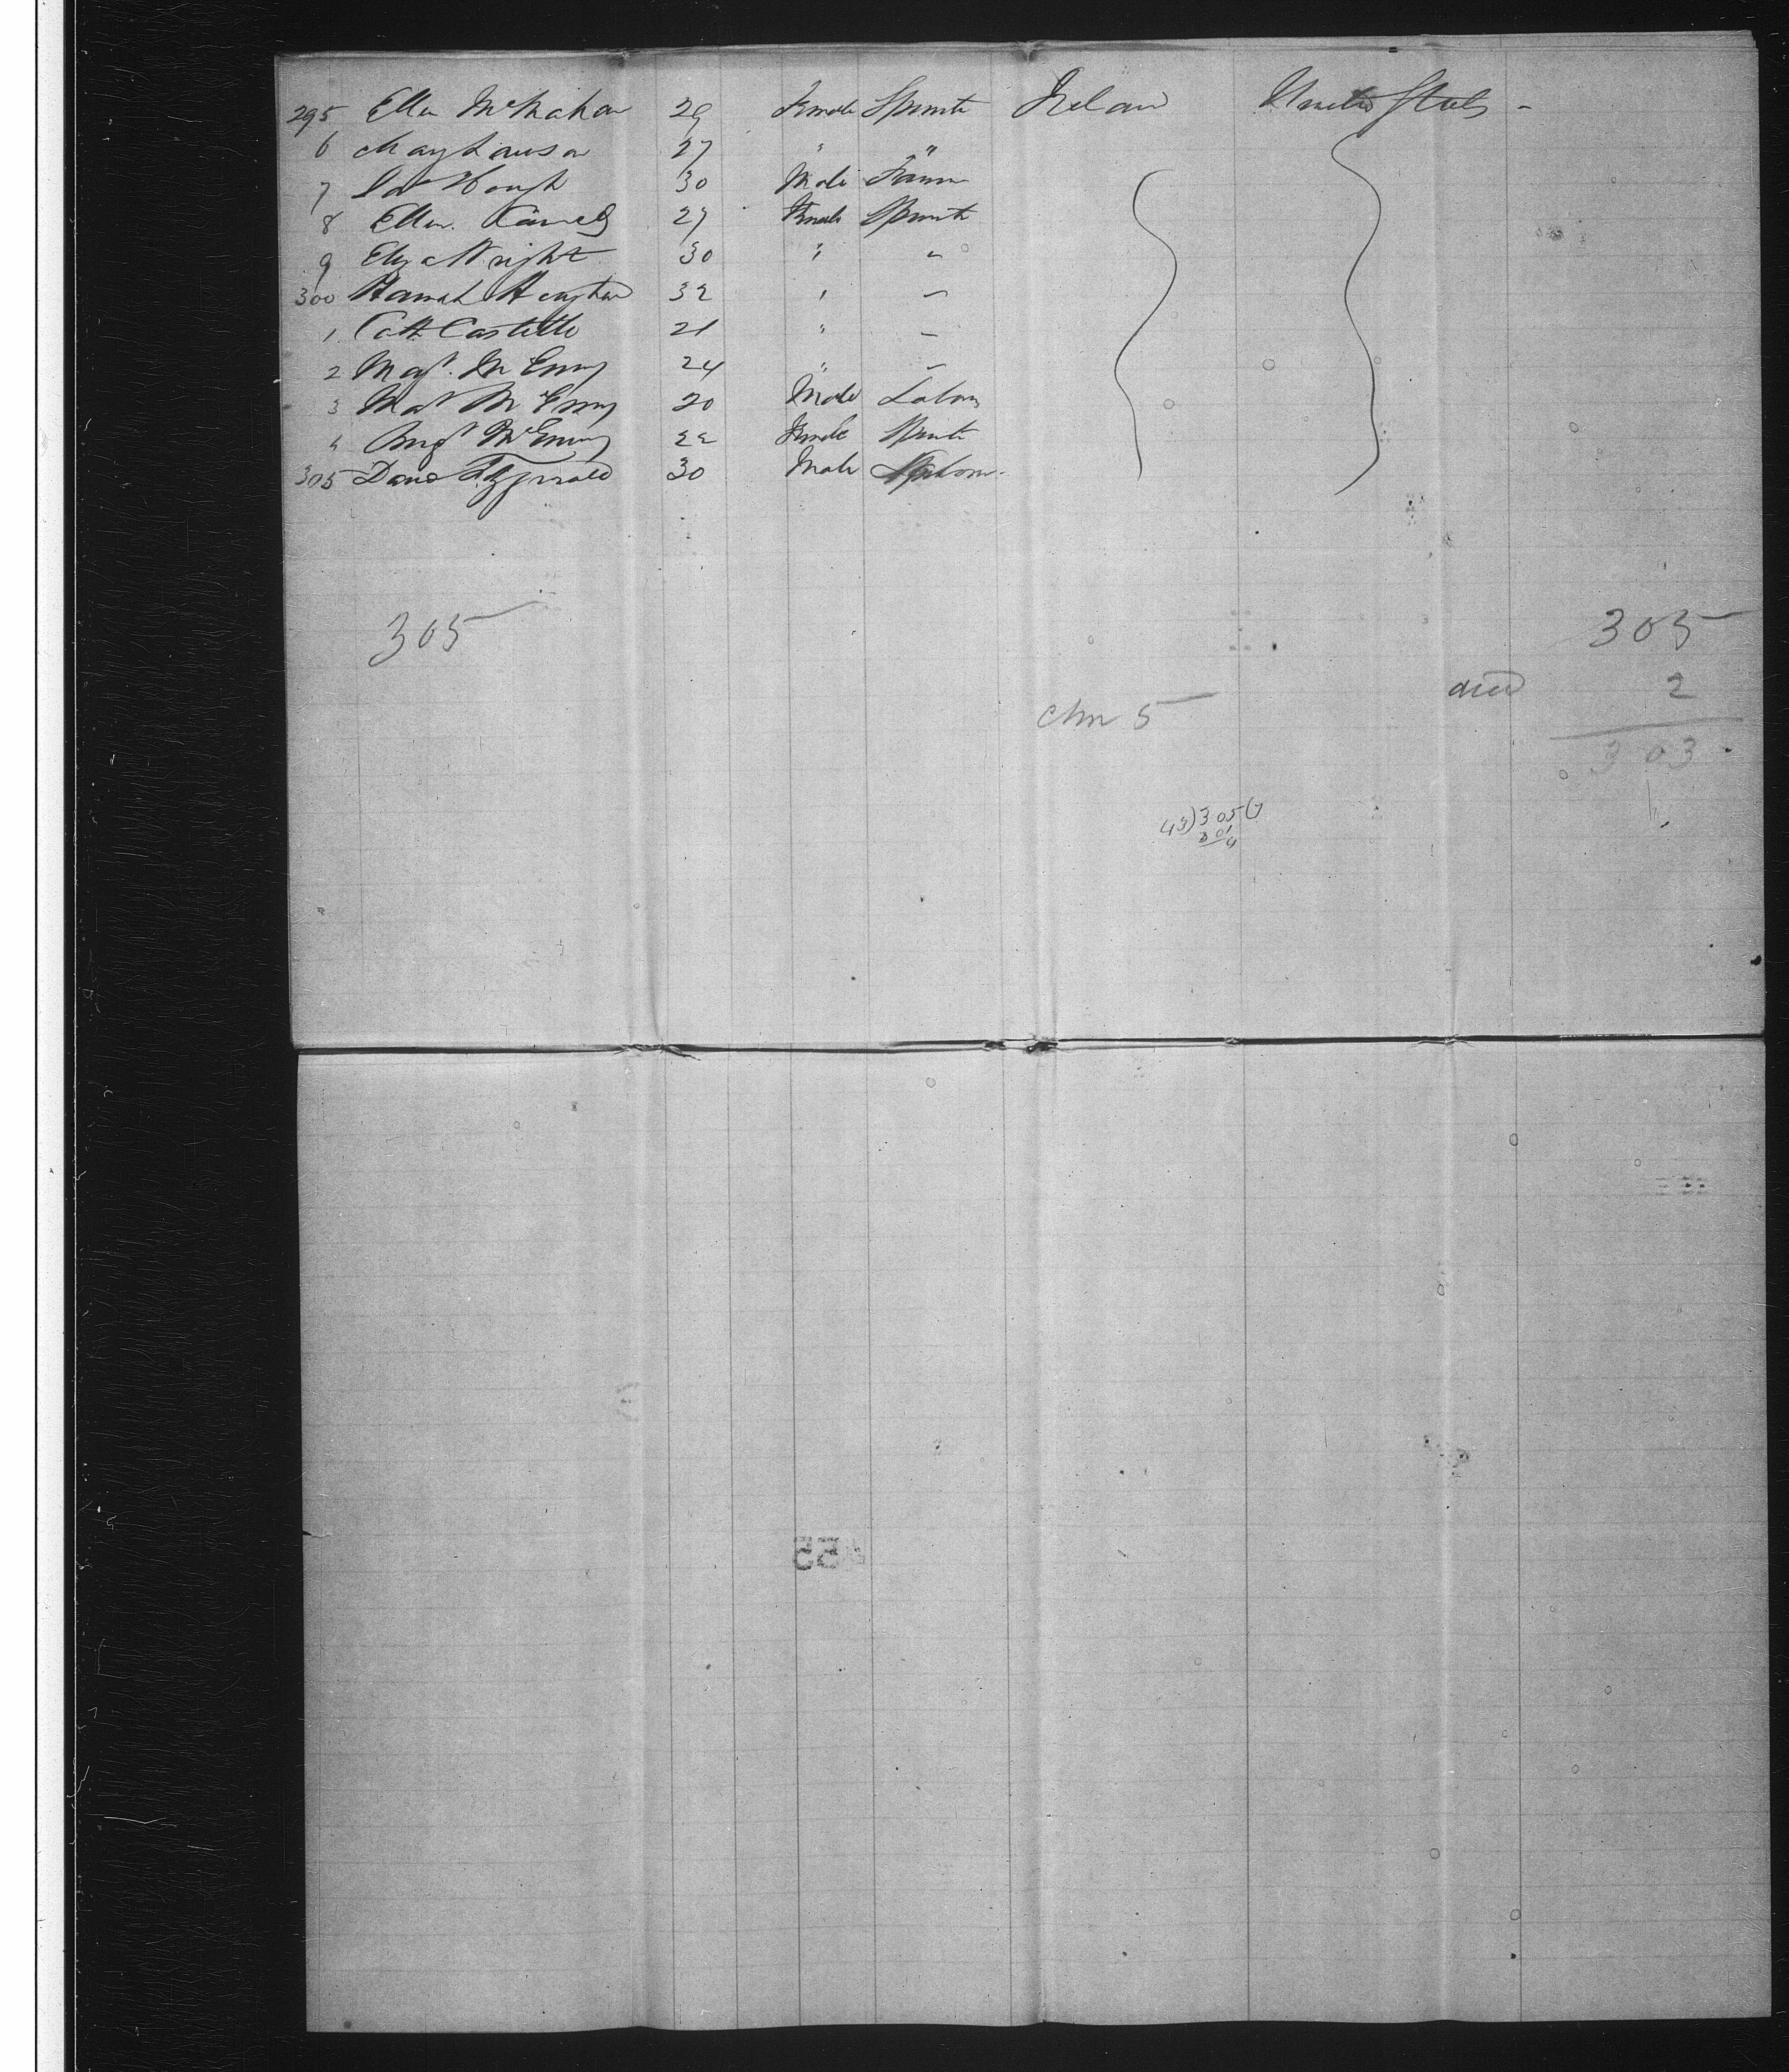 295 Ellen McMahon 29 Female Spinster Ireland United States -
6 Mary Lawson 27 " "
7 Pat Hough 30 Male Farmer
8 Ellen 27 Female Spinster
9 Eliza Wright 30 " "
300 Hannah 32 " "
1 Cath Castello 21 " "
2 Magt. McEnry 24 " "
3 Mat McEnry 20 Male Labour
4 McEnry 22 Female Spinster
305 David Fitzgerald 30 Male
305 305
died 2
Chn 5
303
43)305(7
301
4